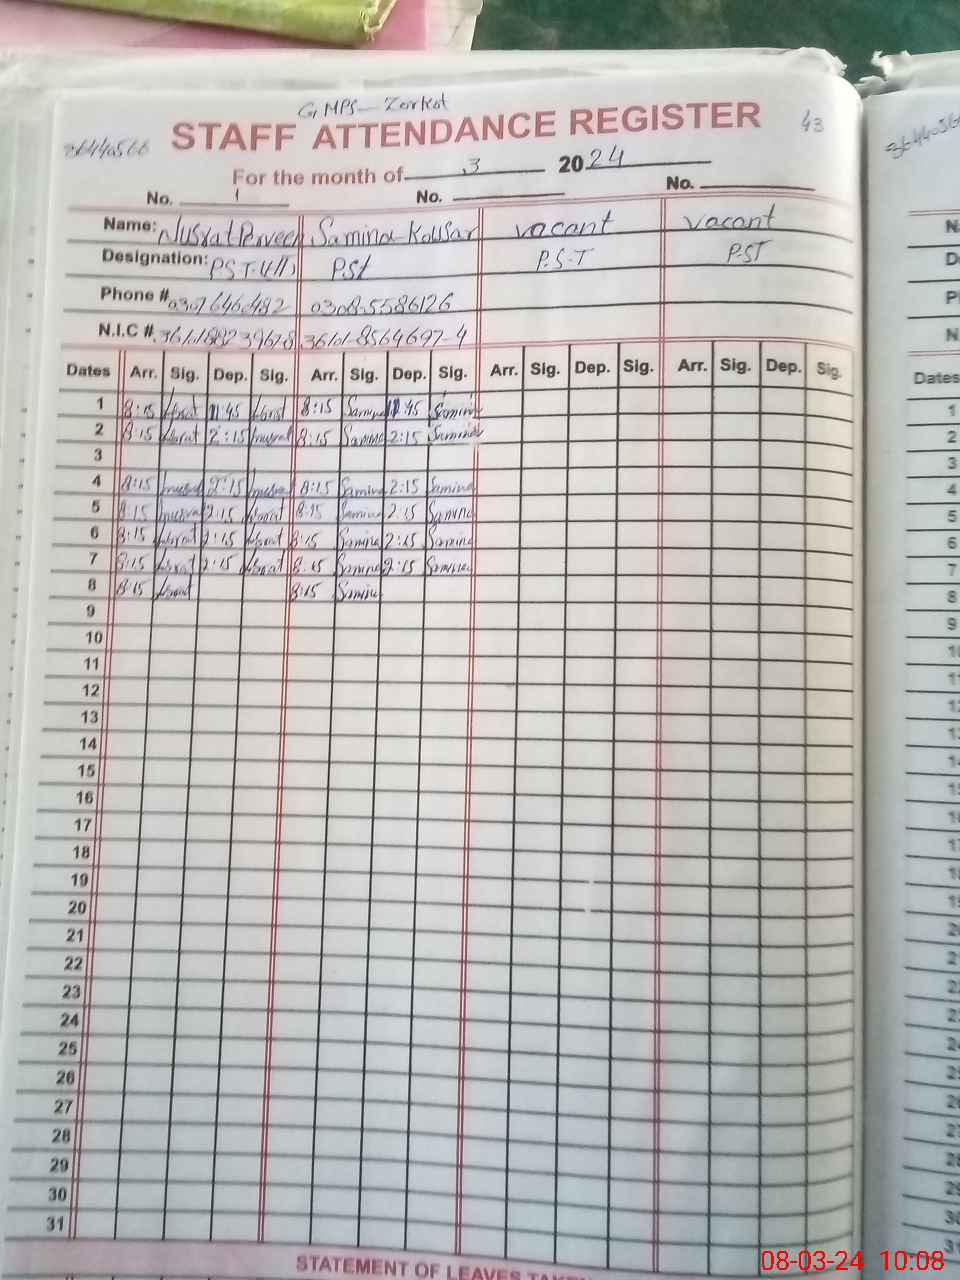 GMPS- Zorkot
STAFF ATTENDANCE REGISTER 43
36440566
For the month of 3 2024
No. 1 No. No.
Name: Nusrat Perveen Samina Kousar vacant vacant
Designation: PST P.St P.S.T P.ST
Phone # 0308-5586126
N.I.C #. 36101-8564697-4
Dates Arr. Sig. Dep. Sig. Arr. Sig. Dep. Sig. Arr. Sig. Dep. Sig. Arr. Sig. Dep. Sig.
1 8:15 Nusrat 11:45 Nusrat 8:15 Samina 11:45 Samina
2 8:15 Nusrat 2:15 Nusrat 8:15 Samina 2:15 Samina
3
4 8:15 Nusrat 2:15 Nusrat 8:15 Samina 2:15 Samina
5 8:15 Nusrat 2:15 Nusrat 8:15 Samina 2:15 Samina
6 8:15 Nusrat 2:15 Nusrat 8:15 Samina 2:15 Samina
7 8:15 Nusrat 2:15 Nusrat 8:15 Samina 2:15 Samina
8 8:15 Nusrat 8:15 Samina
9
10
11
12
13
14
15
16
17
18
19
20
21
22
23
24
25
26
27
28
29
30
31
STATEMENT OF LEAVES
Dates
1
2
3
4
5
6
7
8
9
08-03-24 10:08